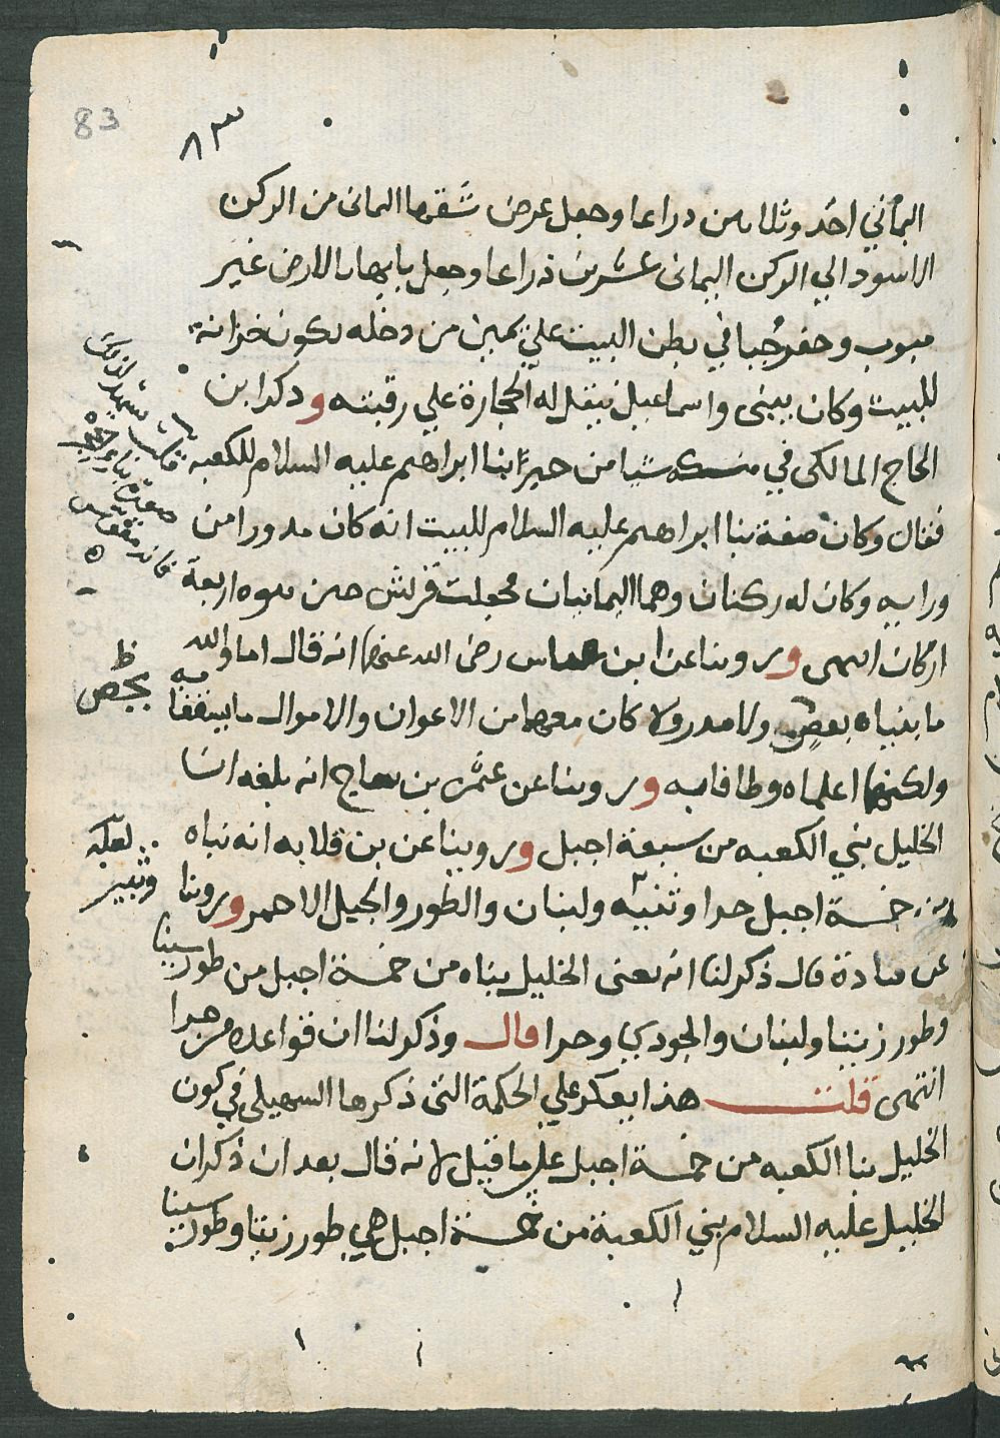 83
٨٣
اليماني احد وثلاثين دراعا وجعل عرض شقها اليمانى من الركن
الاسود الي الركن اليمانى عشرين ذراعا وجعل بابها بالارض غير
مبوب وحفر جُبا في بطن البيت علي يمين من دخله يكون خزانة
للبيت وكان يبنى واسماعيل ينقل له الحجارة علي رقبته و دكر ابن
الحاج المالكى في منسكه شيا من خبر بنا ابراهيم عليه السلام للكعبه
فقال وكان صفة بنا ابراهيم عليه السلام للبيت انه كان مدورا من
ورايه وكان له ركنان وهما اليمانيان فجعلت قريش حين بنوه اربعة
اركان انتهى وروينا عن ابن عباس رضى الله عنهما انه قال اما والله
ما بنياه بقص ولا مدر ولا كان معهما من الاعوان والاموال ما يسقفانه
ولكنهما اعلماه وطافا به وروينا عن عمر بن سهاج انه بلغه ان
الخليل بني الكعبه من سبعة اجبل وروينا عن بن قلابه انه بناه
من خمسة اجبل حرا وثنيه ولبنان والطور والجبل الاحمر وروينا
عن قتادة قال ذكر لنا انه يعنى الخليل بناه من خمسة اجبل من طور سينا
وطور زيتا ولبنان والجودي وحرا قال وذكر لنا ان قواعده من حرا
انتهى قلت هذا يعكر علي الحكمة التى ذكرها السهيلى في كون
الخليل بنا الكعبه من خمسة اجبل علي ما قيل لانه قال بعد ان ذكر ان
الخليل عليه السلام بني الكعبة من خمسة اجبل هي طور زيتا وطور سينا
ظ
بجص
لعله
وثبير